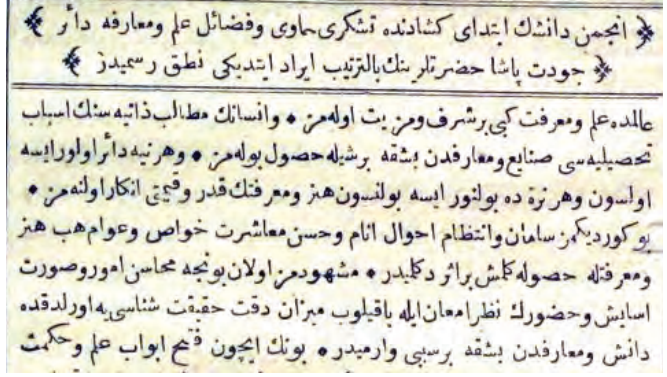 انجمن دانشك ابتدای كشادنده تشكری حاوی وفضائل علم ومعارفه دائر
جودت پاشا حضرتلرینك بالترتیب ایراد ایتدیكی نطق رسمیدر
عالمده علم ومعرفت كبی برشرف ومزیت اوله مز • وانسانك مطالب ذاتیه سنك اسباب
تحصیلیه سی صنایع ومعارفدن بشقه برشیله حصول بوله مز • وهر نیه دائر اولورایسه
اولسون وهر نره ده بولنور ایسه بولنسون هنر ومعرفتك قدر وقیمتی انكار اولنه مز •
بو كوردیكمز سامان وانتظام احوال انام وحسن معاشرت خواص وعوام هب هنر
ومعرفتله حصوله كلمش براثر دكلیدر • مشهودمز اولان بونجه محاسن امور وصورت
اسایش وحضورك نظر امعان ایله باقیلوب میزان دقت حقیقت شناسی یه اورلدقده
دانش ومعارفدن بشقه برسببی وارمیدر • بونك ایچون فتح ابواب علم وحكمت